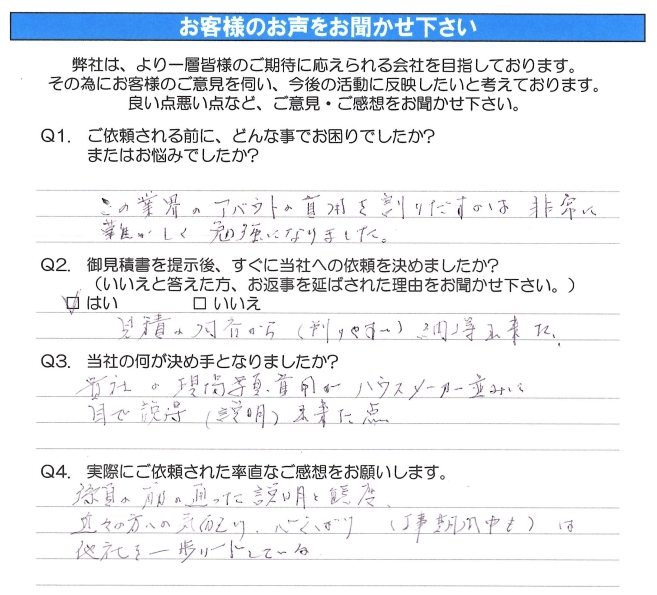 お客様のお声をお聞かせ下さい
弊社は、より一層皆様のご期待に応えられる会社を目指しております。
その為にお客様のご意見を伺い、今後の活動に反映したいと考えております。
良い点悪い点など、ご意見・ご感想をお聞かせ下さい。
Q1. ご依頼される前に、どんな事でお困りでしたか?
またはお悩みでしたか?
この業界のアバウトの費用を割りだすかは 非常に
難かしく 勉強になりました。
Q2. 御見積書を提示後、すぐに当社への依頼を決めましたか?
(いいえと答えた方、お返事を延ばされた理由をお聞かせ下さい。)
はい いいえ
見積の内容から (判りやすい) 納得出来た。
Q3. 当社の何が決め手となりましたか?
貴社の現場写真・費用が ハウスメーカー並みに
目で説得 (説明) 出来た点
Q4. 実際にご依頼された率直なご感想をお願いします。
の筋の通った説明と態度、
近々の方への気配り、心くばり (工事期間中も) は
他社を一歩リードしている